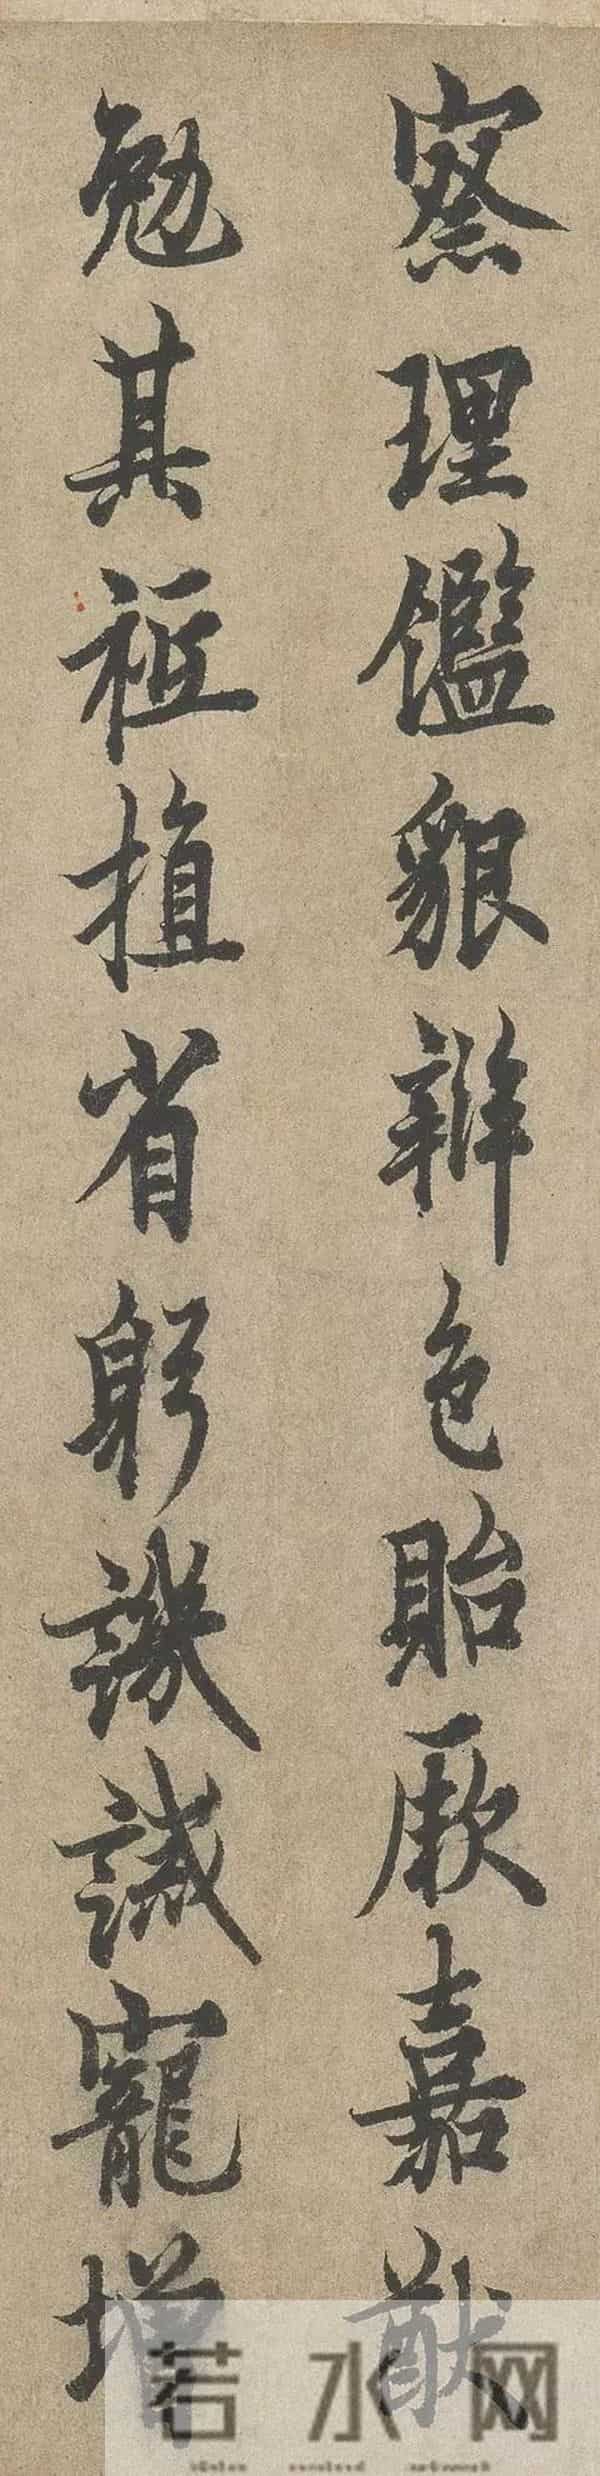 察理鑑貌辨色貽厥嘉猷
勉其祗植省躬譏誡寵增
若水网